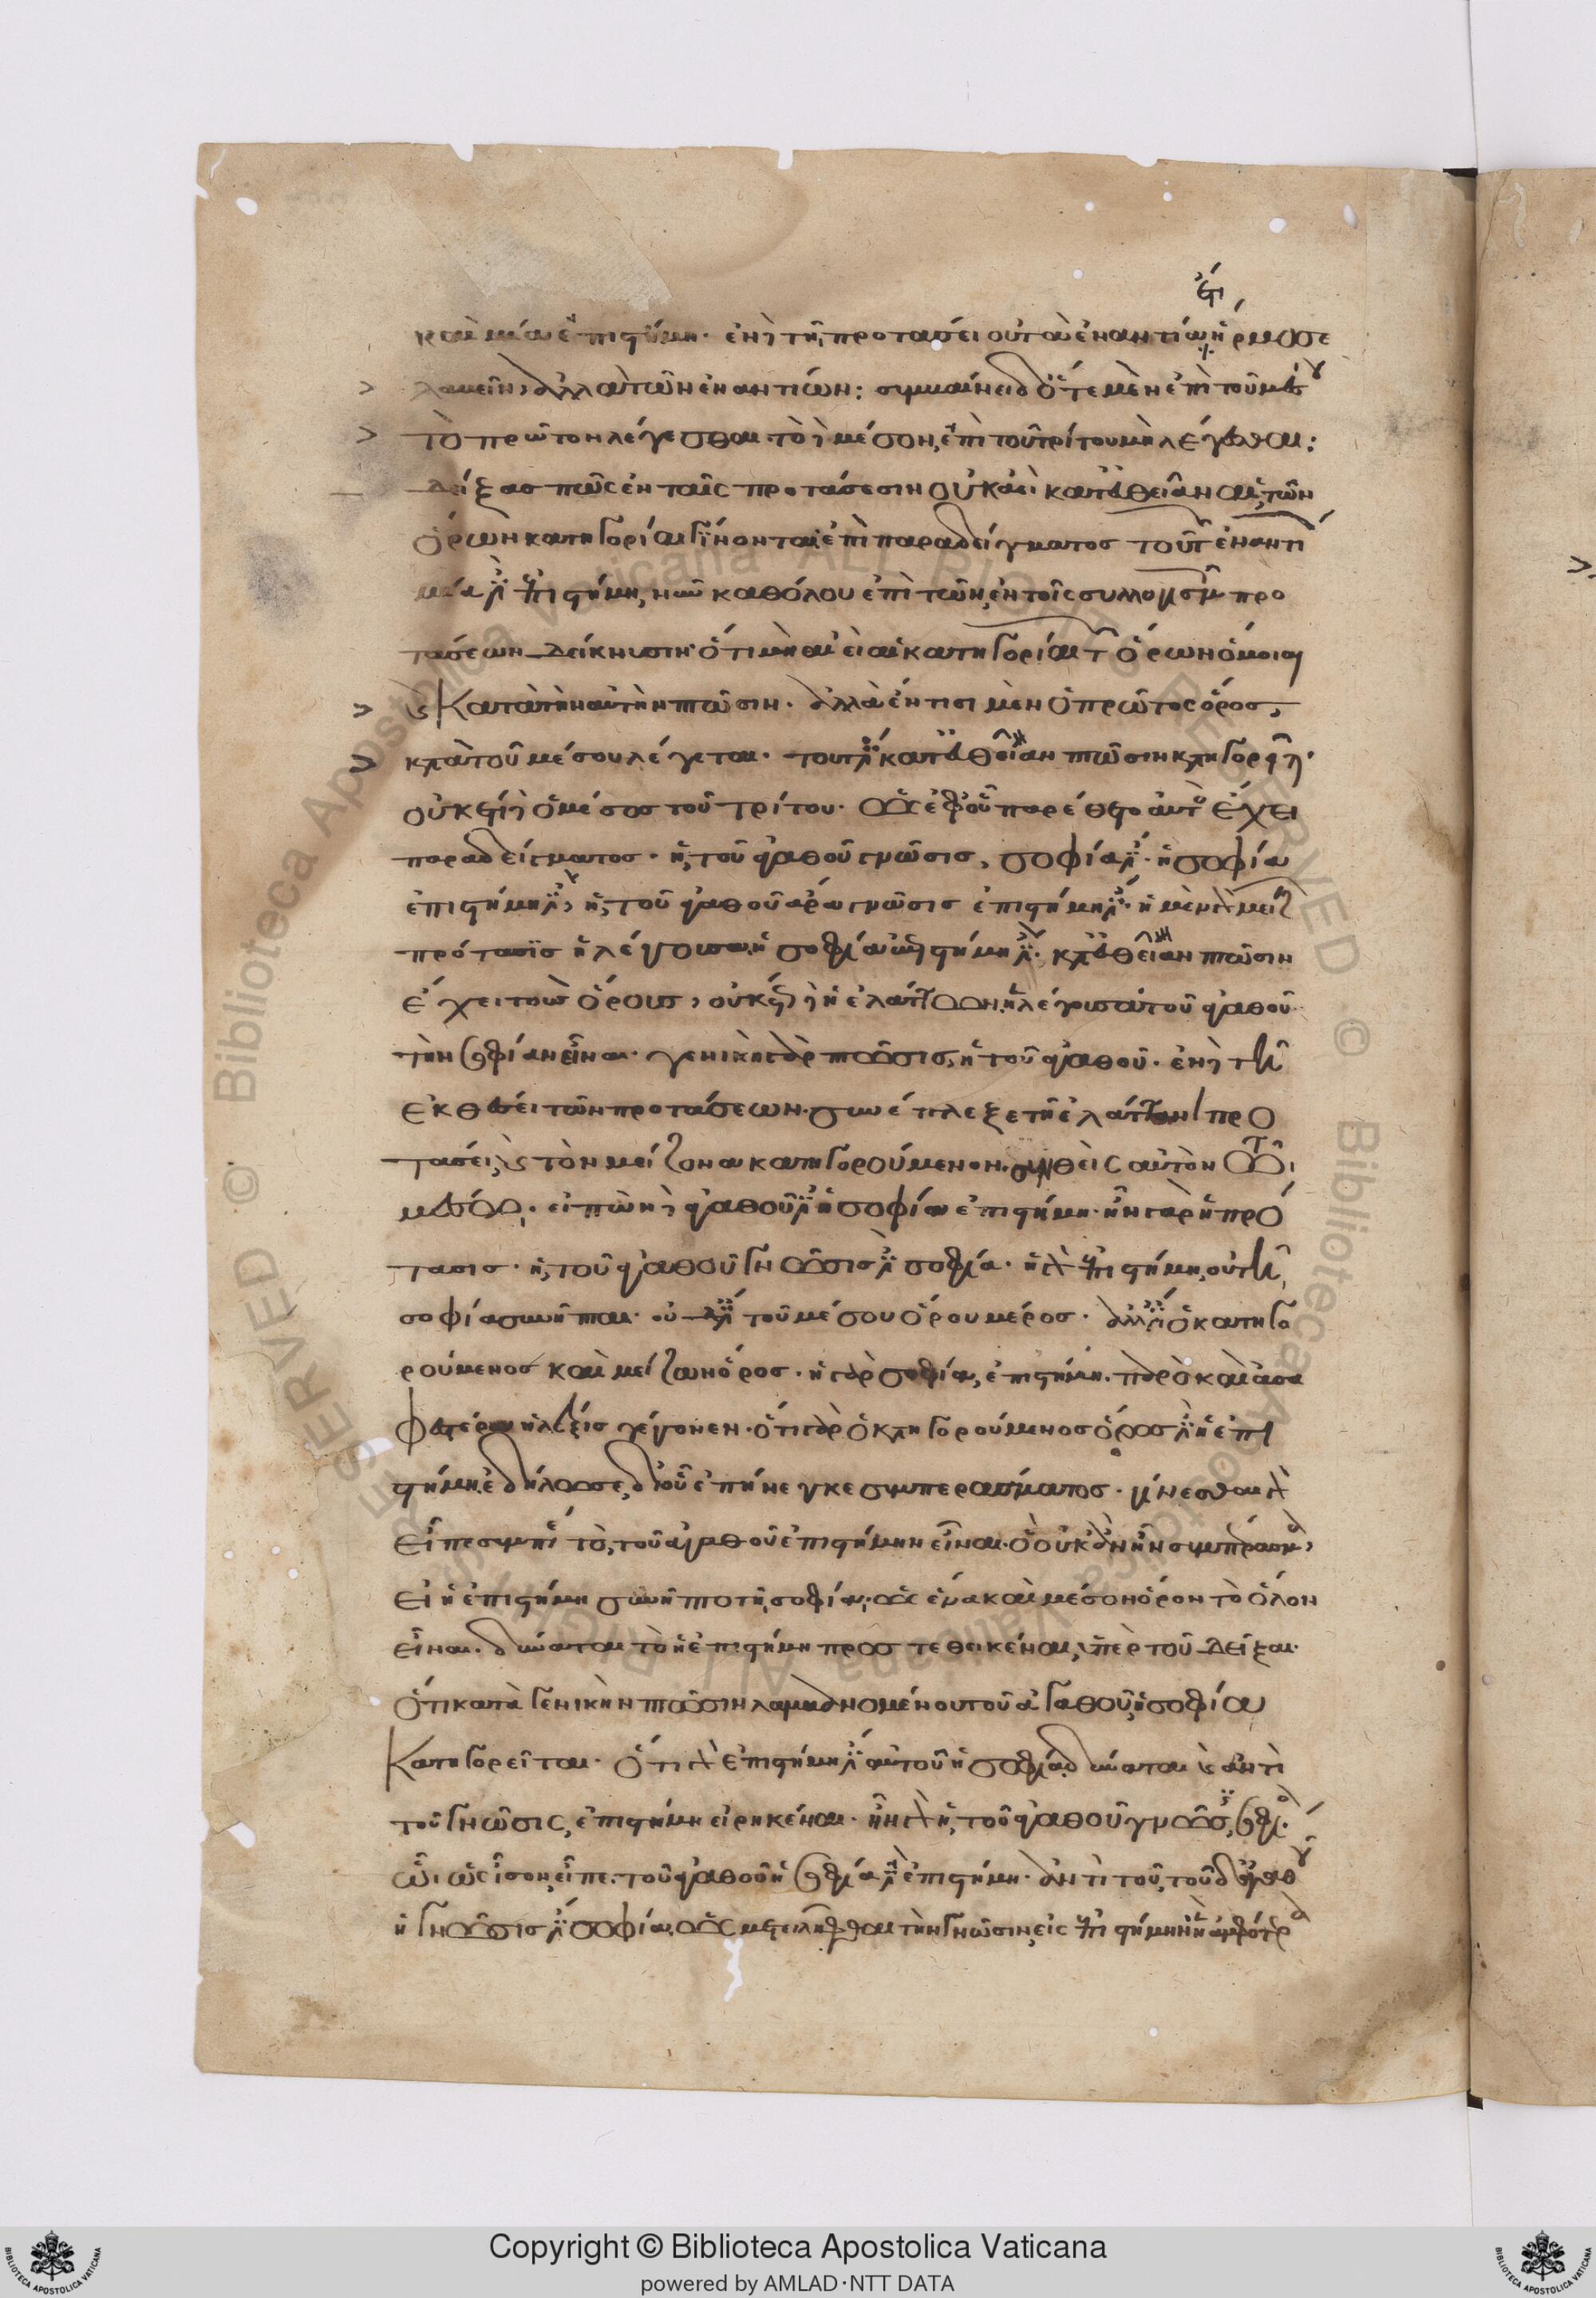 ἔτι
καὶ μία ἐπιστήμη· ἐν δὲ τῇ προτάσει οὐ τὰ ἐναντία ἥρμοσε
λαβεῖν, ἀλλὰ τῶν ἐναντίων: συμβαίνει δὲ ὁτὲ μὲν ἐπὶ τοῦ μέσου
τὸ πρῶτον λέγεσθαι τὸ δὲ μέσον ἐπὶ τοῦ τρίτου μὴ λέγεσθαι:
δείξας πῶς ἐν ταῖς προτάσεσιν οὐκ ἀεὶ κατ' εὐθεῖαν αἱ τῶν
ὅρων κατηγορίαι γίνονται ἐπὶ παραδείγματος τοῦ τῶν ἐναντί
μία ἐστὶν ἐπιστήμη, νῦν καθόλου ἐπὶ τῶν ἐν τοῖς συλλογισμοῖς προ
τάσεων δείκνυσιν ὅτι μὴ ἀεὶ αἱ κατηγορίαι τῶν ὅρων ὅμοιαι
καὶ κατὰ τὴν αὐτὴν πτῶσιν. ἀλλὰ ἔν τισι μὲν ὁ πρῶτος ὅρος
κατὰ τοῦ μέσου λέγεται· τουτέστι κατ' εὐθεῖαν πτῶσιν κατηγορεῖται·
οὐκέτι δὲ ὁ μέσος τοῦ τρίτου· ὡς ἐφ' οὗ παρέθετο αὐτὸς ἔχει
παραδείγματος· ἡ τοῦ ἀγαθοῦ γνῶσις, σοφία ἐστίν· ἡ σοφία
ἐπιστήμη ἐστίν, ἡ τοῦ ἀγαθοῦ ἄρα γνῶσις ἐπιστήμη ἐστίν· ἡ μὲν γὰρ μείζων
πρότασις ἡ λέγουσα ἡ σοφία ἐπιστήμη ἐστί· κατ' εὐθεῖαν πτῶσιν
ἔχει τοὺς ὅρους, οὐκέτι δὲ ἡ ἐλάττων ἡ λέγουσα τοῦ ἀγαθοῦ
τὴν σοφίαν εἶναι· γενικὴ γὰρ πτῶσις ἡ τοῦ ἀγαθοῦ· ἐν δὲ τῇ
ἐκθέσει τῶν προτάσεων συνέπλεξε τῇ ἐλάττονι προ
τάσει καὶ τὸν μείζονα κατηγορούμενον συνθεὶς αὐτὸν τῷ
μέσῳ· εἰπὼν δὲ ἀγαθοῦ ἐστιν ἡ σοφία ἐπιστήμη· ἦν γὰρ ἡ πρό
τασις· ἡ τοῦ ἀγαθοῦ γνῶσίς ἐστι σοφία· ἡ δὲ ἐπιστήμη, οὐ τῇ
σοφίᾳ συνῆπται· οὐδέ ἐστι τοῦ μέσου ὅρου μέρος· ἀλλ' ἔστιν ὁ κατηγο
ρούμενος καὶ μείζων ὅρος· ἡ γὰρ σοφία, ἐπιστήμη· παρὸ καὶ ἀσα
φεστέρα ἡ λέξις γέγονεν· ὅτι γὰρ ὁ κατηγορούμενος ὅρος ἐστὶν ἡ ἐπι
στήμη ἐδήλωσε, δι' οὗ ἐπήνεγκε συμπεράσματος· γίνεσθαι γὰρ
εἶπε συμπέρασμα τὸ τοῦ ἀγαθοῦ ἐπιστήμην εἶναι· ὃ οὐκ ἂν ἦν συμπέρασμα,
εἰ ἡ ἐπιστήμη συνῆπτο τῇ σοφίᾳ· ὡς ἕνα καὶ μέσον ὅρον τὸ ὅλον
εἶναι. δύναται τὸ ἡ ἐπιστήμη προστεθεικέναι, ὑπὲρ τοῦ δεῖξαι
ὅτι κατὰ γενικὴν πτῶσιν λαμβανομένου τοῦ ἀγαθοῦ ἡ σοφία
κατηγορεῖται· ὅτι γὰρ ἐπιστήμη ἐστὶν αὐτοῦ ἡ σοφία· δύναται καὶ ἀντὶ
τοῦ γνῶσις, ἐπιστήμη εἰρηκέναι· ἦν γὰρ ἡ τοῦ ἀγαθοῦ γνῶσις, σοφία·
ᾧ ὡς ἴσον εἶπε τοῦ ἀγαθοῦ ἡ σοφία ἐστὶν ἐπιστήμη· ἀντὶ τοῦ, τοῦ δὲ ἀγαθοῦ
ἡ γνῶσίς ἐστι σοφία, ὡς μετειλῆφθαι τὴν γνῶσιν εἰς ἐπιστήμην· ἢ ἀμφότερα